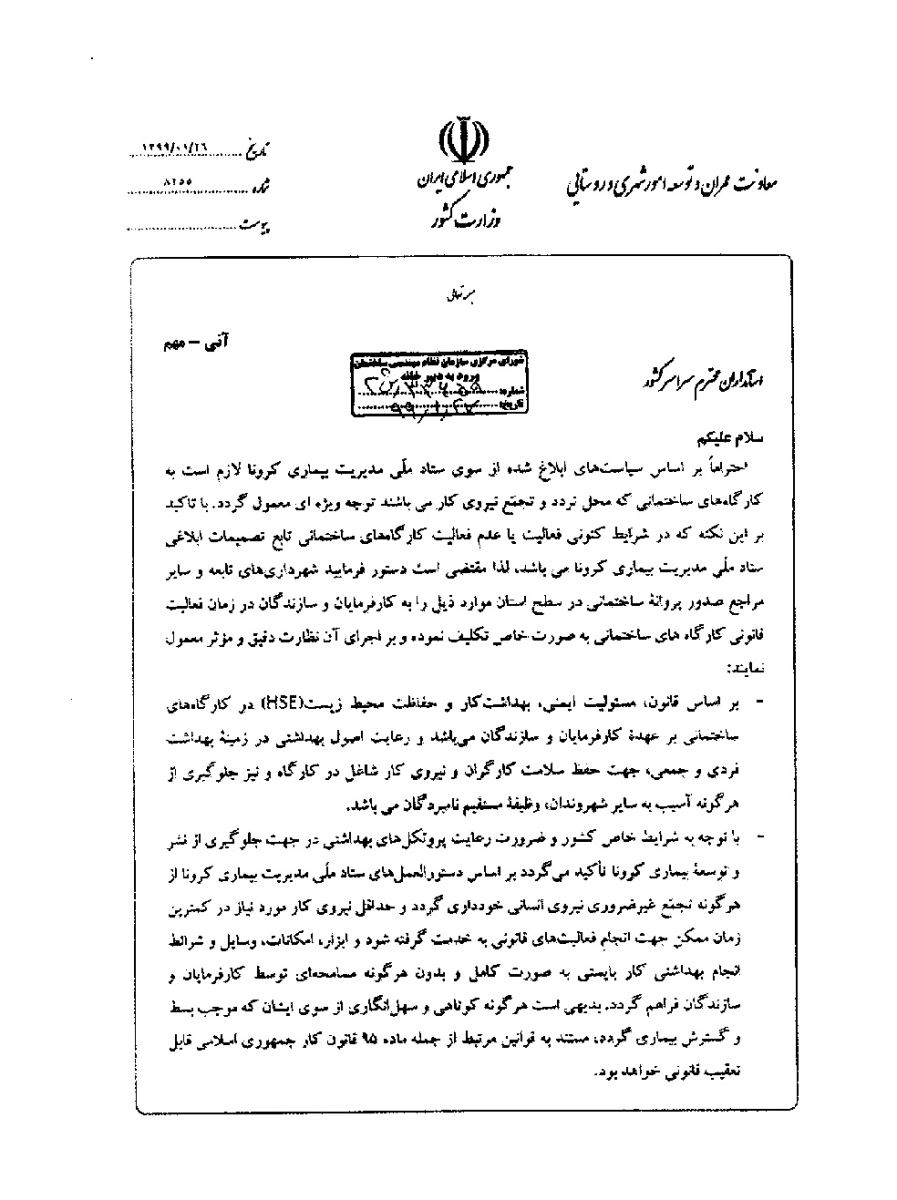 معاونت عمران و توسعه امور شهری و روستایی
جمهوری اسلامی ایران
وزارت کشور
تاریخ ۱۳۹۹/۰۱/۲۶
شماره ۸۲۵۵
پیوست
بسمه تعالی
آنی – مهم
شورای مرکزی سازمان نظام مهندسی ساختمان
ورود به دبیر خانه
شماره:
تاریخ: ۹۹/۱/۲۷
استانداران محترم سراسر کشور
سلام علیکم
احتراماً بر اساس سیاست‌های ابلاغ شده از سوی ستاد ملّی مدیریت بیماری کرونا لازم است به
کارگاه‌های ساختمانی که محل تردد و تجمّع نیروی کار می باشند توجه ویژه ای معمول گردد. با تاکید
بر این نکته که در شرایط کنونی فعالیت یا عدم فعالیت کارگاه‌های ساختمانی تابع تصمیمات ابلاغی
ستاد ملّی مدیریت بیماری کرونا می باشد، لذا مقتضی است دستور فرمایید شهرداری‌های تابعه و سایر
مراجع صدور پروانهٔ ساختمانی در سطح استان موارد ذیل را به کارفرمایان و سازندگان در زمان فعالیت
قانونی کارگاه های ساختمانی به صورت خاص تکلیف نموده و بر اجرای آن نظارت دقیق و مؤثر معمول
نمایند:
- بر اساس قانون، مسئولیت ایمنی، بهداشت‌کار و حفاظت محیط زیست(HSE) در کارگاه‌های
ساختمانی بر عهدهٔ کارفرمایان و سازندگان می‌باشد و رعایت اصول بهداشتی در زمینهٔ بهداشت
فردی و جمعی، جهت حفظ سلامت کارگران و نیروی کار شاغل در کارگاه و نیز جلوگیری از
هرگونه آسیب به سایر شهروندان، وظیفهٔ مستقیم نامبردگان می باشد.
- با توجه به شرایط خاص کشور و ضرورت رعایت پروتکل‌های بهداشتی در جهت جلوگیری از نشر
و توسعهٔ بیماری کرونا تأکید می‌گردد بر اساس دستورالعمل‌های ستاد ملّی مدیریت بیماری کرونا از
هرگونه تجمّع غیرضروری نیروی انسانی خودداری گردد و حداقل نیروی کار مورد نیاز در کمترین
زمان ممکن جهت انجام فعالیت‌های قانونی به خدمت گرفته شود و ابزار، امکانات، وسایل و شرائط
انجام بهداشتی کار بایستی به صورت کامل و بدون هرگونه مسامحه‌ای توسط کارفرمایان و
سازندگان فراهم گردد. بدیهی است هرگونه کوتاهی و سهل‌انگاری از سوی ایشان که موجب بسط
و گسترش بیماری گردد، مستند به قوانین مرتبط از جمله ماده ۹۵ قانون کار جمهوری اسلامی قابل
تعقیب قانونی خواهد بود.